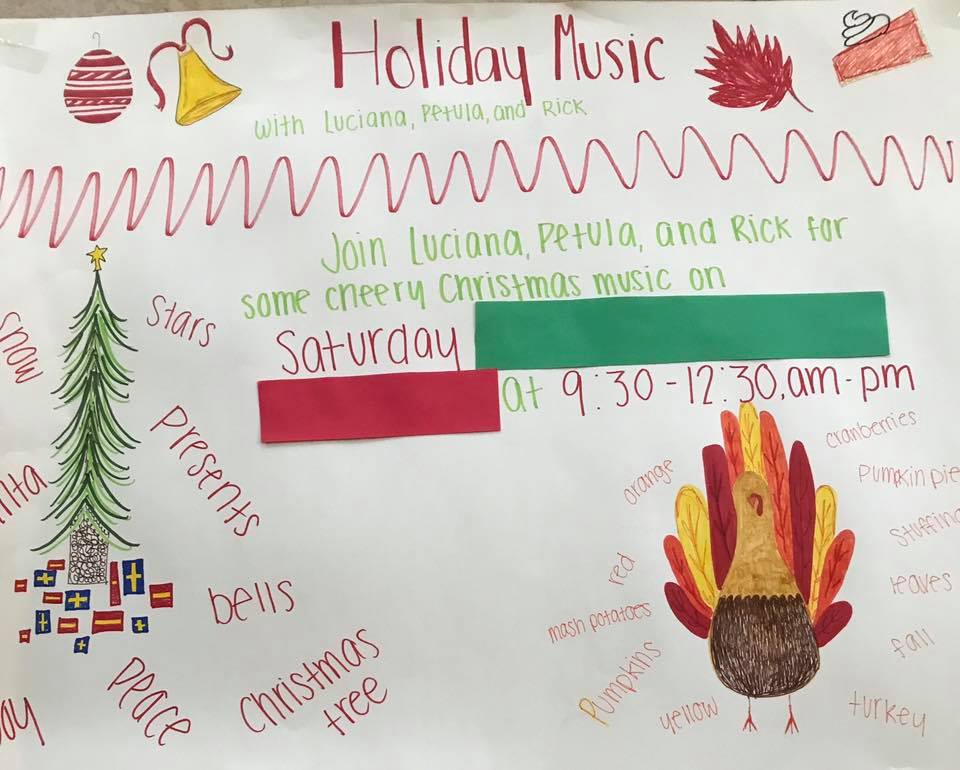 Holiday Music
with Luciana, Petula, and Rick
Join Luciana, Petula, and Rick for
some cheery Christmas music on
Saturday
at 9:30-12:30, am-pm
snow
stars
presents
bells
christmas
tree
peace
orange
red
mash potatoes
pumpkins
yellow
cranberries
pumpkin pie
stuffing
leaves
fall
turkey